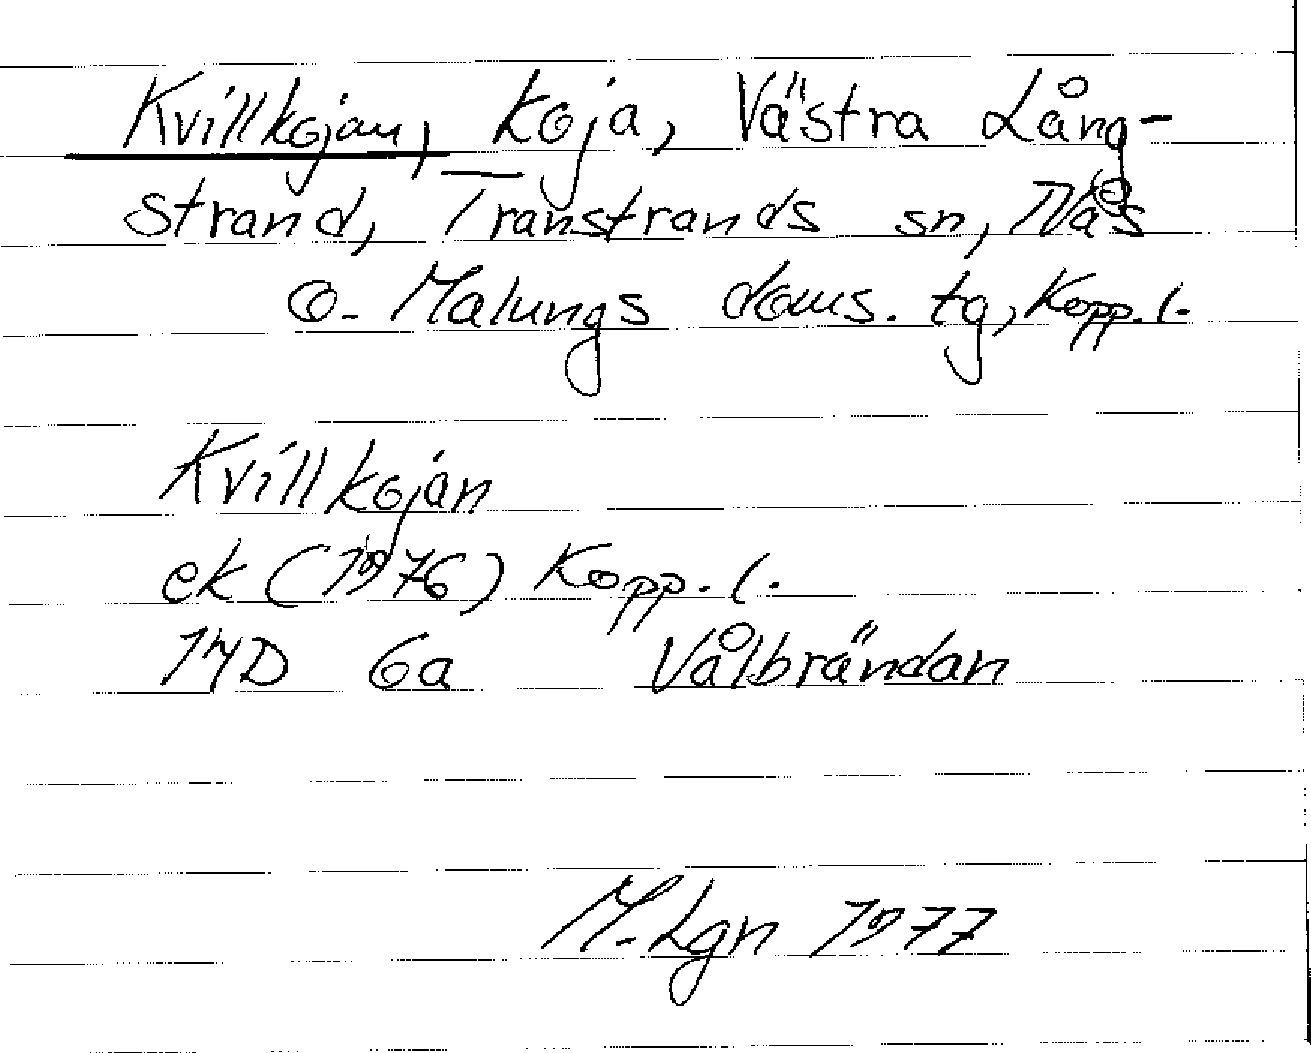 Kvillkojan, koja, Västra Lång-
strand, Transtrands sn, Nås
o. Malungs doms. tg, Kopp. l.
Kvillkojan
ek (1976) Kopp. l.
14D 6a Vålbrändan
M. Lgn 1977